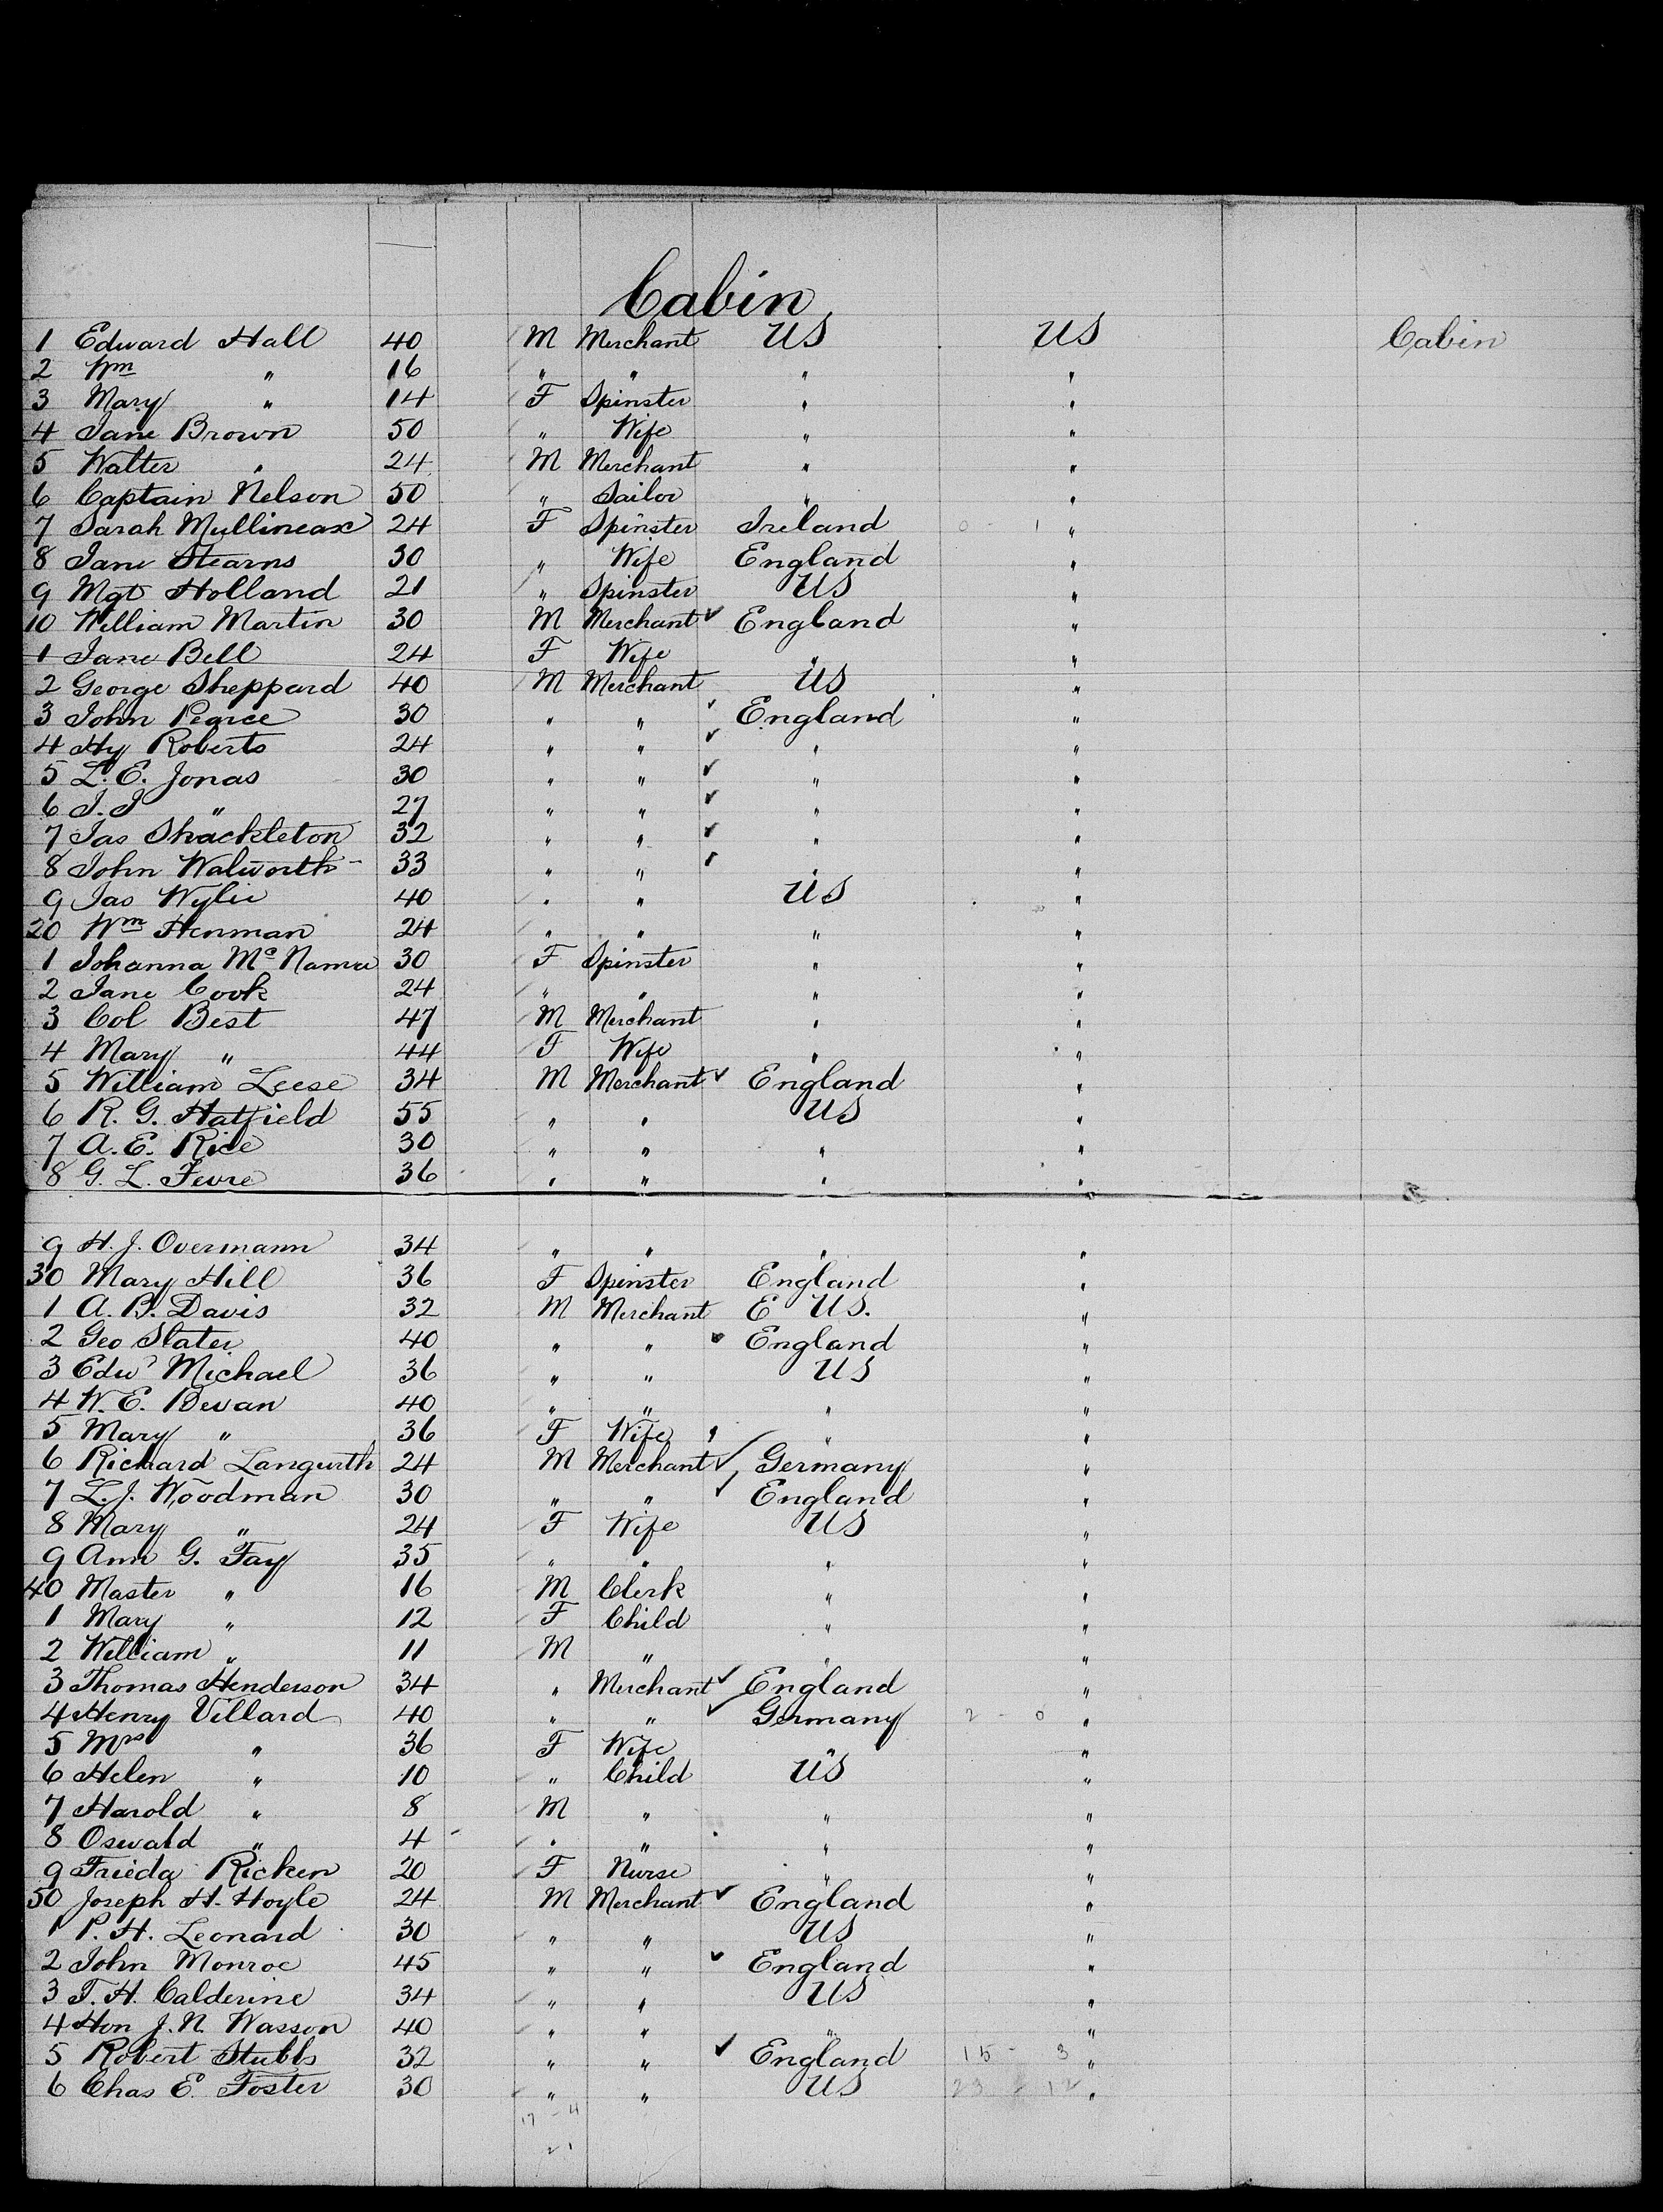 Cabin
1 Edward Hall 40 M Merchant US US Cabin
2 Wm " 16 " " " "
3 Mary " 14 F Spinster " "
4 Jane Brown 50 " Wife " "
5 Walter " 24 M Merchant " "
6 Captain Nelson 50 " Sailor " "
7 Sarah Mullineax 24 F Spinster Ireland 0 - 1 "
8 Jane Stearns 30 " Wife England "
9 Mgt Holland 21 " Spinster US "
10 William Martin 30 M Merchant ✓ England "
1 Jane Bell 24 F Wife " "
2 George Sheppard 40 M Merchant US "
3 John Pearce 30 " " ✓ England "
4 Hy Roberts 24 " " ✓ " "
5 L. E. Jonas 30 " " ✓ " "
6 J. J " 27 " " ✓ " "
7 Jas Shackleton 32 " " ✓ " "
8 John Walworth 33 " " ✓ " "
9 Jas Wylie 40 " " US "
20 Wm Henman 24 " " " "
1 Johanna McNamra 30 F Spinster " "
2 Jane Cook 24 " " " "
3 Col Best 47 M Merchant " "
4 Mary " 44 F Wife " "
5 William Leese 34 M Merchant ✓ England "
6 R. G. Hatfield 55 " " US "
7 A. E. Rice 30 " " " "
8 G. L. Fevre 36 " " " "
9 H. J. Overmann 34 " " " "
30 Mary Hill 36 F Spinster England "
1 A. B. Davis 32 M Merchant E US. "
2 Geo Slater 40 " " ✓ England "
3 Edwd Michael 36 " " US "
4 W. E. Bevan 40 " " " "
5 Mary " 36 F Wife " " "
6 Richard Langurth 24 M Merchant ✓ Germany "
7 L. J. Woodman 30 " " ✓ England "
8 Mary " 24 F Wife US "
9 Ann G. Fay 35 " " " "
40 Master " 16 M Clerk " "
1 Mary " 12 F Child " "
2 William " 11 M " " "
3 Thomas Henderson 34 " Merchant ✓ England "
4 Henry Villard 40 " " ✓ Germany 2 - 0 "
5 Mrs " 36 F Wife " "
6 Helen " 10 " Child US "
7 Harold " 8 M " " "
8 Oswald " 4 " " " "
9 Frieda Ricken 20 F Nurse " "
50 Joseph H. Hoyle 24 M Merchant ✓ England "
1 P. H. Leonard 30 " " US "
2 John Monroe 45 " " ✓ England "
3 T. H. Calderine 34 " " US "
4 Hon J. N. Wasson 40 " " " "
5 Robert Stubbs 32 " " ✓ England 15 - 3 "
6 Chas E. Foster 30 " " US 23 - 12 "
17 - 4
21